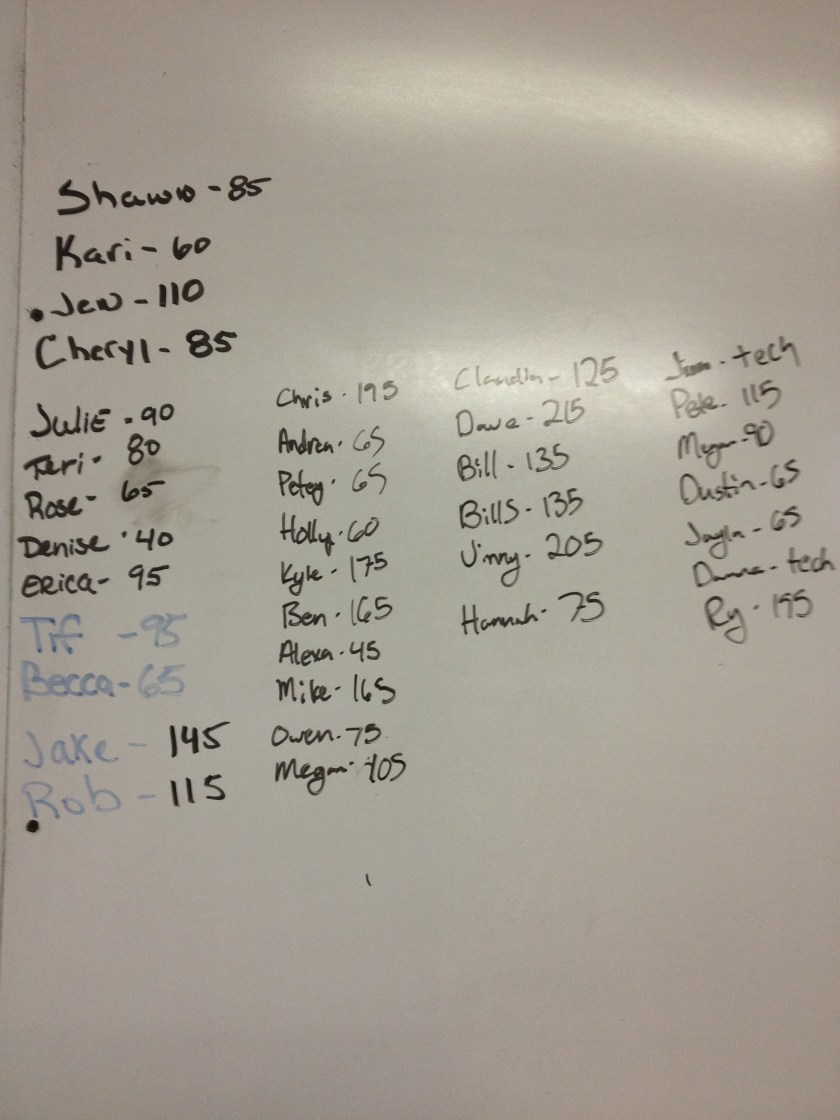 Shawn - 85
Kari - 60
Jen - 110
Cheryl - 85
Julie - 90
Teri - 80
Rose - 65
Denise - 40
Erica - 95
Tif - 95
Becca - 65
Jake - 145
Rob - 115
Chris - 195
Andrea - 65
Petey - 65
Holly - 60
Kyle - 175
Ben - 165
Alexa - 45
Mike - 165
Owen - 75
Megan - 105
Claudia - 125
Dave - 215
Bill - 135
BillS - 135
Jinny - 205
Hannah - 75
- tech
Pete - 115
Megan - 90
Dustin - 65
Jayla - 65
- tech
Ry - 195